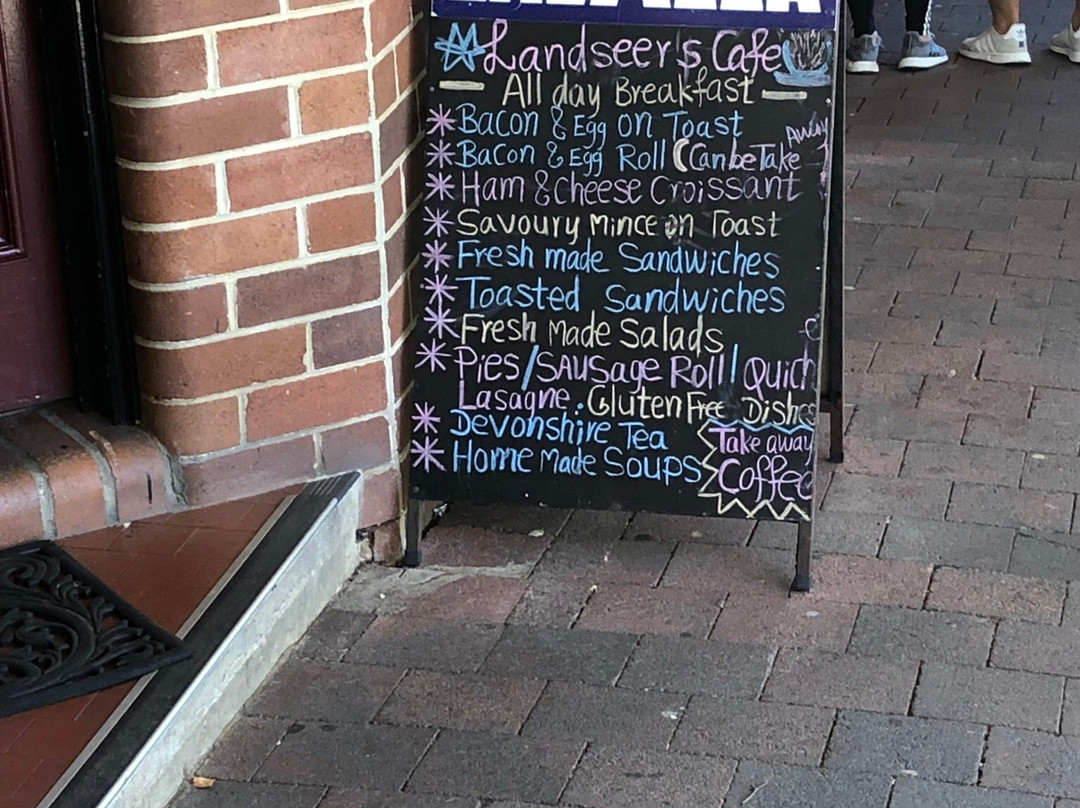 Landseer's Cafe
All day Breakfast
Bacon & Egg on Toast
Bacon & Egg Roll (Can be Take Away)
Ham & Cheese Croissant
Savoury Mince on Toast
Fresh made Sandwiches
Toasted Sandwiches
Fresh Made Salads
Pies/Sausage Roll/Quich
Lasagne. Gluten Free Dishes
Devonshire Tea
Home Made Soups
Take away
Coffee